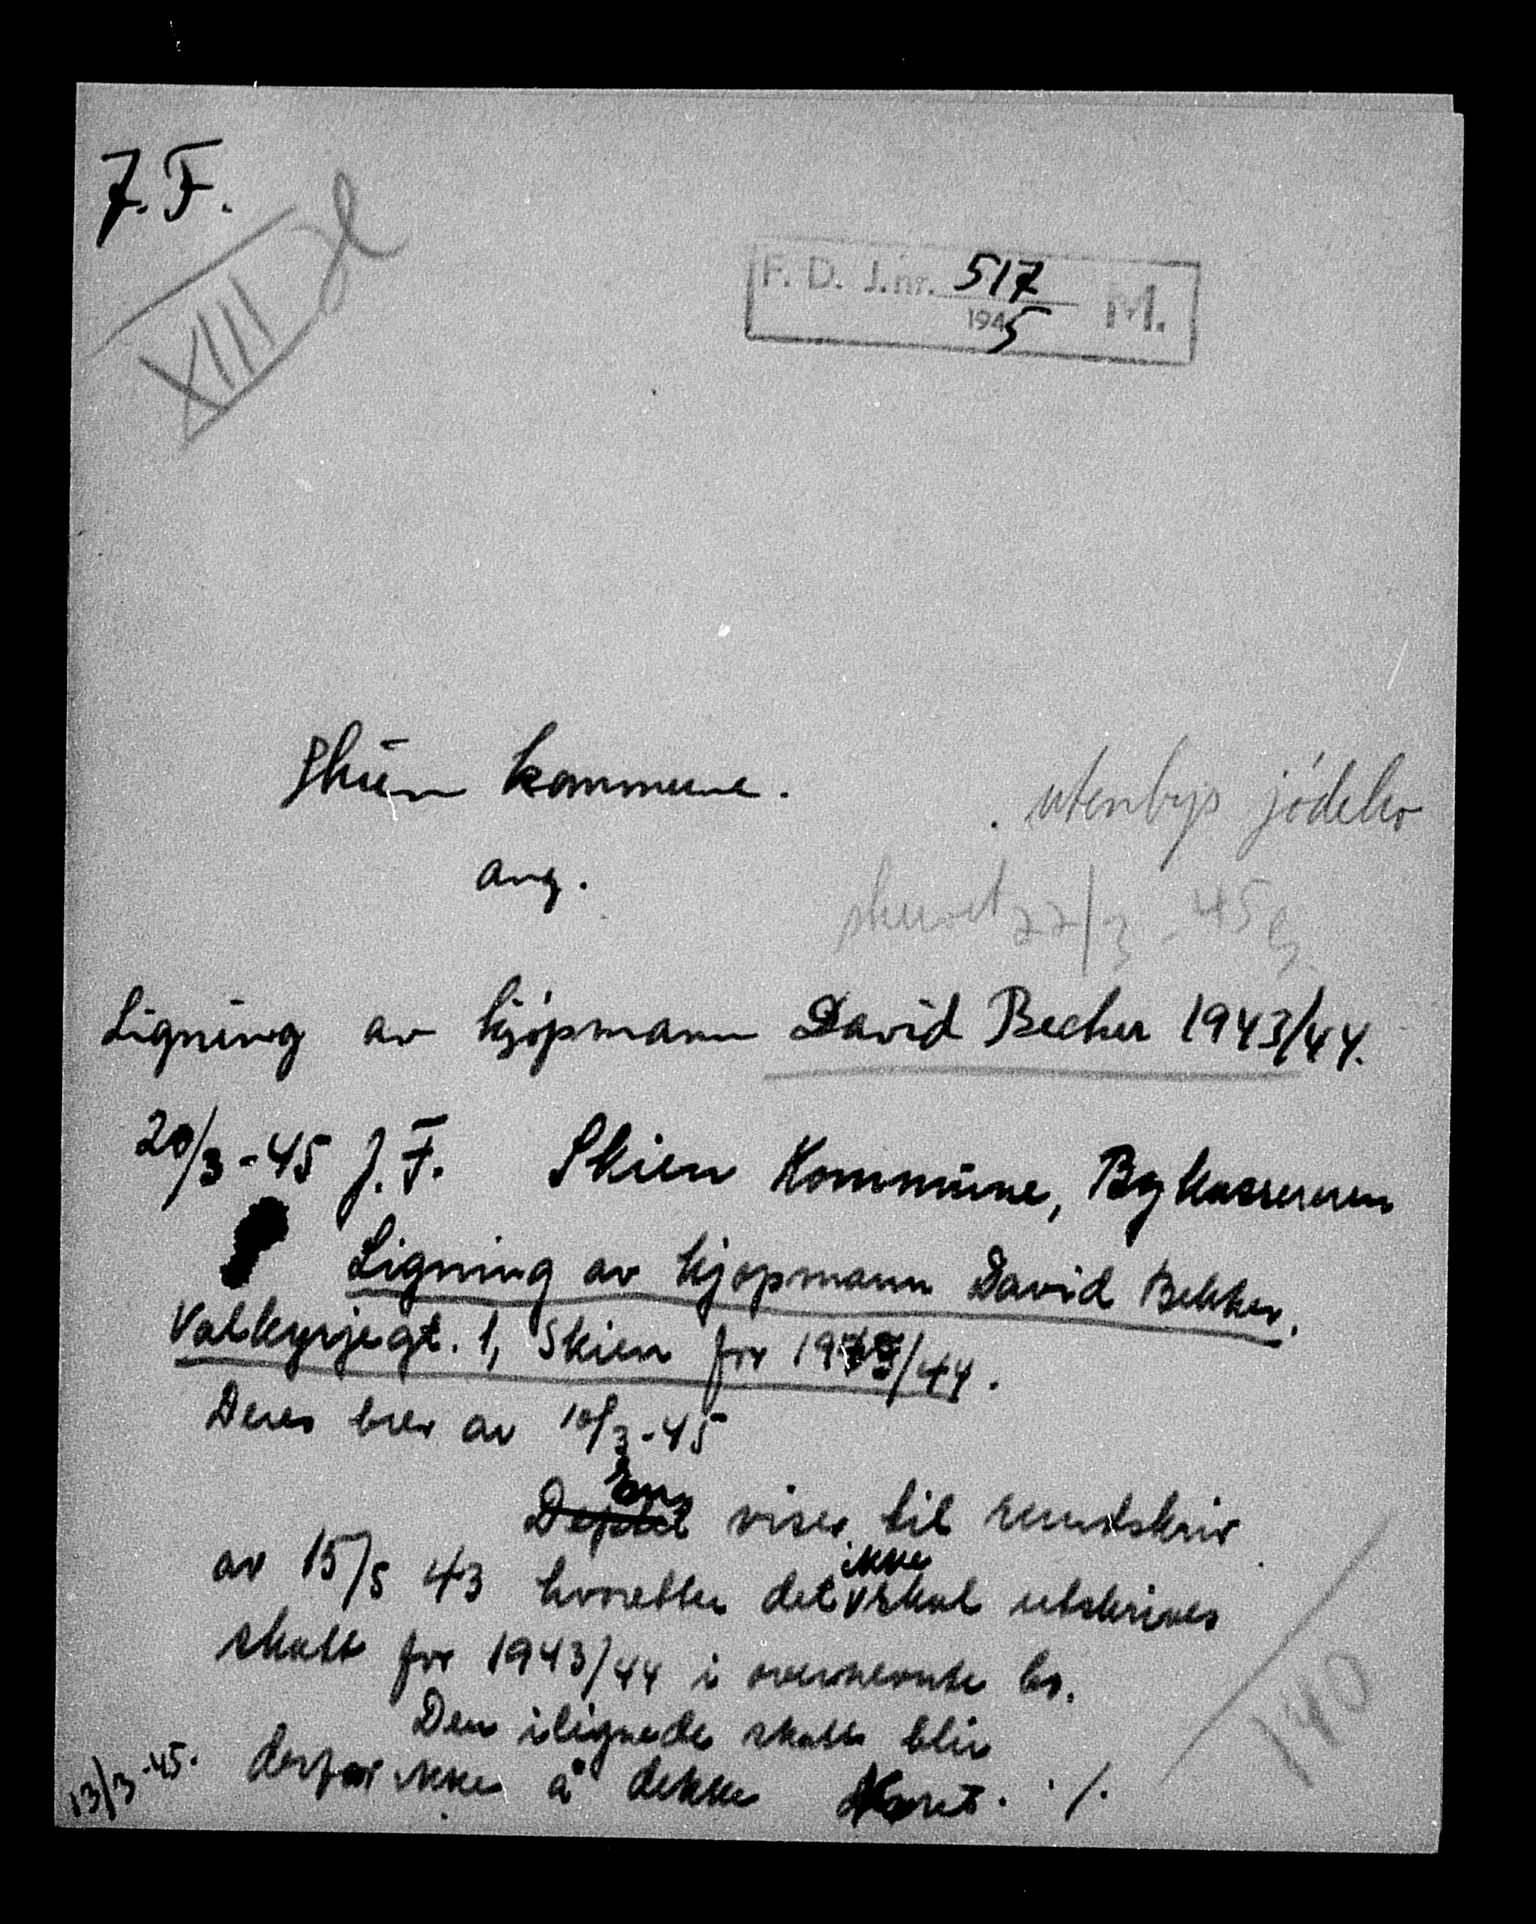 J. F.
XIII
F. D. J.nr. 517 M.
1945
Skien kommune.
utenbys
ang.
skrevet 22/3 - 45
Ligning av kjøpmann David Becker 1943/44.
20/3 - 45 J. F. Skien Kommune, Bykassereren
Ligning av kjøpmann David Bekker,
Valkyrjegt. 1, Skien for 1943/44.
Deres brev av 10/3 - 45
En
viser til rundskriv
ikke
av 15/5 43 hvoretter det skal utskrives
skatt for 1943/44 i overnevnte bo.
Den ilignede skatt blir
derfor ikke å dekke
13/3 - 45.
140